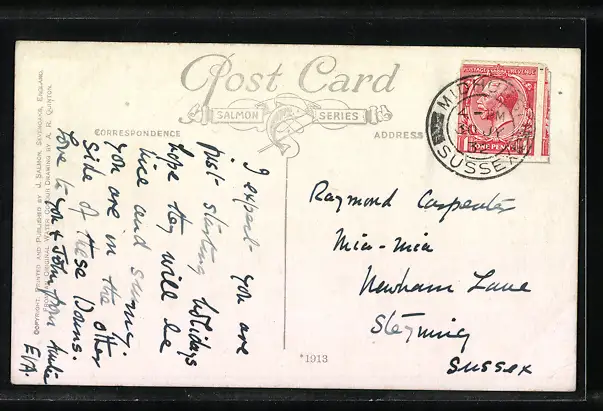 Post Card
SALMON SERIES
CORRESPONDENCE
ADDRESS
COPYRIGHT. PRINTED AND PUBLISHED BY J. SALMON, SEVENOAKS, ENGLAND.
FROM ORIGINAL WATER COLOUR DRAWING BY A. R. QUINTON.
I expect you are
just starting holidays
hope they will be
nice and sunny.
you are in the other
side of these Downs.
love to you & John from Auntie
E/A.
POSTAGE REVENUE
ONE PENNY
MIDHURST
4 - PM
30 JY
SUSSEX
Raymond Carpenter
Mia-mia
Newham Lane
Steyning
Sussex
*1913